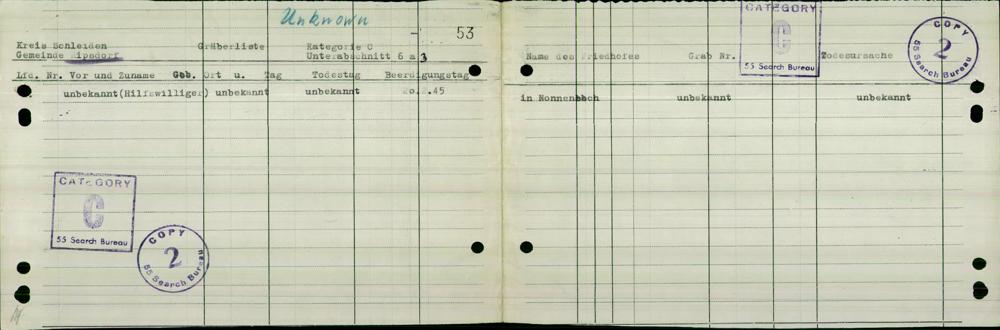 Unknown
53
Kreis Schleiden Gräberliste Kategorie C
Gemeinde Ripsdorf Unterabschnitt 6 a 3
Lfd. Nr. Vor und Zuname Geb. Ort u. Tag Todestag Beerdigungstag
unbekannt(Hilfswilliger) unbekannt unbekannt 20.2.45
CATEGORY
C
55 Search Bureau
COPY
2
55 Search Bureau
CATEGORY
C
55 Search Bureau
COPY
2
55 Search Bureau
Name des Friedhofes Grab Nr. Todesursache
in Nonnenbach unbekannt unbekannt